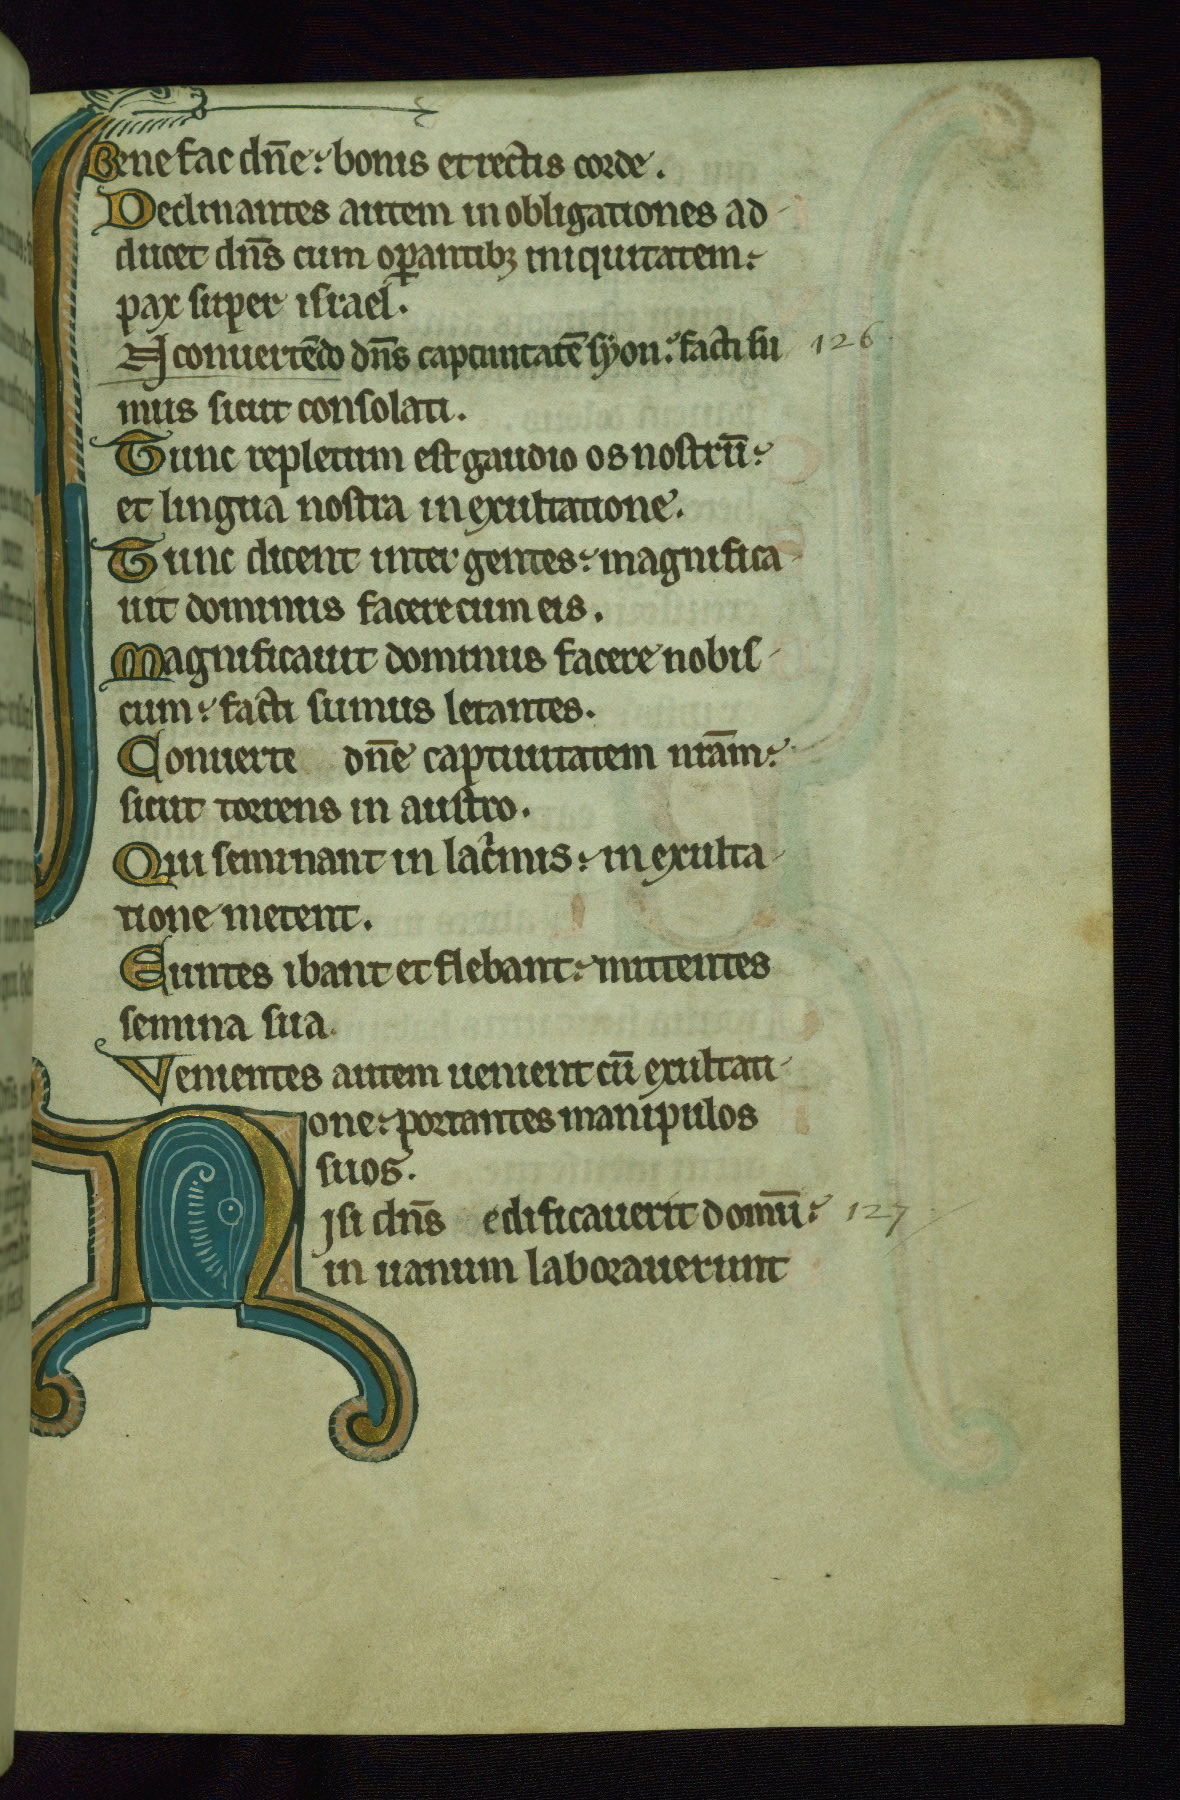 Bene fac dn̄e: bonis et rectis corde.
Declinantes autem in obligationes ad
ducet dn̄s cum oꝑantibꝫ iniquitatem:
pax super israel.
In conuertēdo dn̄s captiuitatē syon: facti su 126
mus sicut consolati.
Tunc repletum est gaudio os nostrū:
et lingua nostra in exultatione.
Tunc dicent inter gentes: magnifica
uit dominus facere cum eis.
Magnificauit dominus facere nobis
cum: facti sumus letantes.
Conuerte dn̄e captiuitatem nr̄am:
sicut torrens in austro.
Qui seminant in lacͥmis: in exulta
tione metent.
Euntes ibant et flebant: mittentes
semina sua.
Venientes autem uenient cū exultati
one: portantes manipulos
suos.
Nisi dn̄s edificauerit domū: 127
in uanum laborauerunt